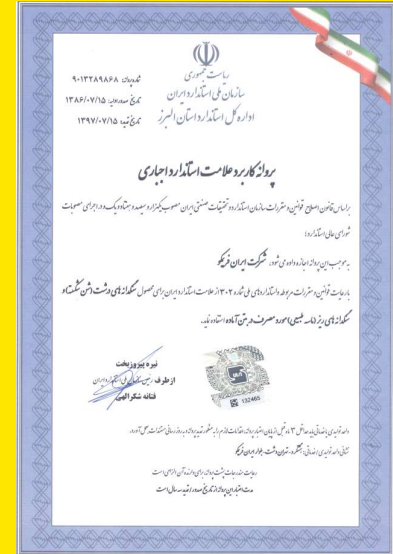 ریاست جمهوری
سازمان ملی استاندارد ایران
اداره کل استاندارد استان البرز
شماره پروانه: ۹۰۱۳۲۸۹۸۶۸
تاریخ صدور اولیه: ۱۳۸۶/۰۷/۱۵
تاریخ تمدید: ۱۳۹۷/۰۷/۱۵
پروانه کاربرد علامت استاندارد اجباری
براساس قانون اصلاح قوانین و مقررات سازمان استاندارد و تحقیقات صنعتی ایران مصوب یکهزار و سیصد و هفتاد و یک و در اجرای مصوبات
شورای عالی استاندارد:
به موجب این پروانه اجازه داده می شود، شرکت ایران فریکو
با رعایت قوانین و مقررات مربوطه و استانداردهای ملی شماره ۳۰۲ از علامت استاندارد ایران برای محصول سنگدانه های درشت (شن شکسته) و
سنگدانه های ریز (ماسه طبیعی) مورد مصرف در بتن آماده استفاده نماید.
نیره پیروزبخت
از طرف رئیس سازمان ملی استاندارد ایران
فتانه شکرالهی
132465
واحد تولیدی / خدماتی باید حداقل ۳ ماه قبل از پایان اعتبار پروانه، اقدامات لازم را به منظور تمدید پروانه و به روز رسانی مستندات به عمل آورد.
نشانی واحد تولیدی / خدماتی: هشتگرد، تهران دشت، بلوار ایران فریکو
رعایت مندرجات پشت پروانه برای دارنده آن الزامی است
مدت اعتبار این پروانه از تاریخ صدور / تمدید سه سال است